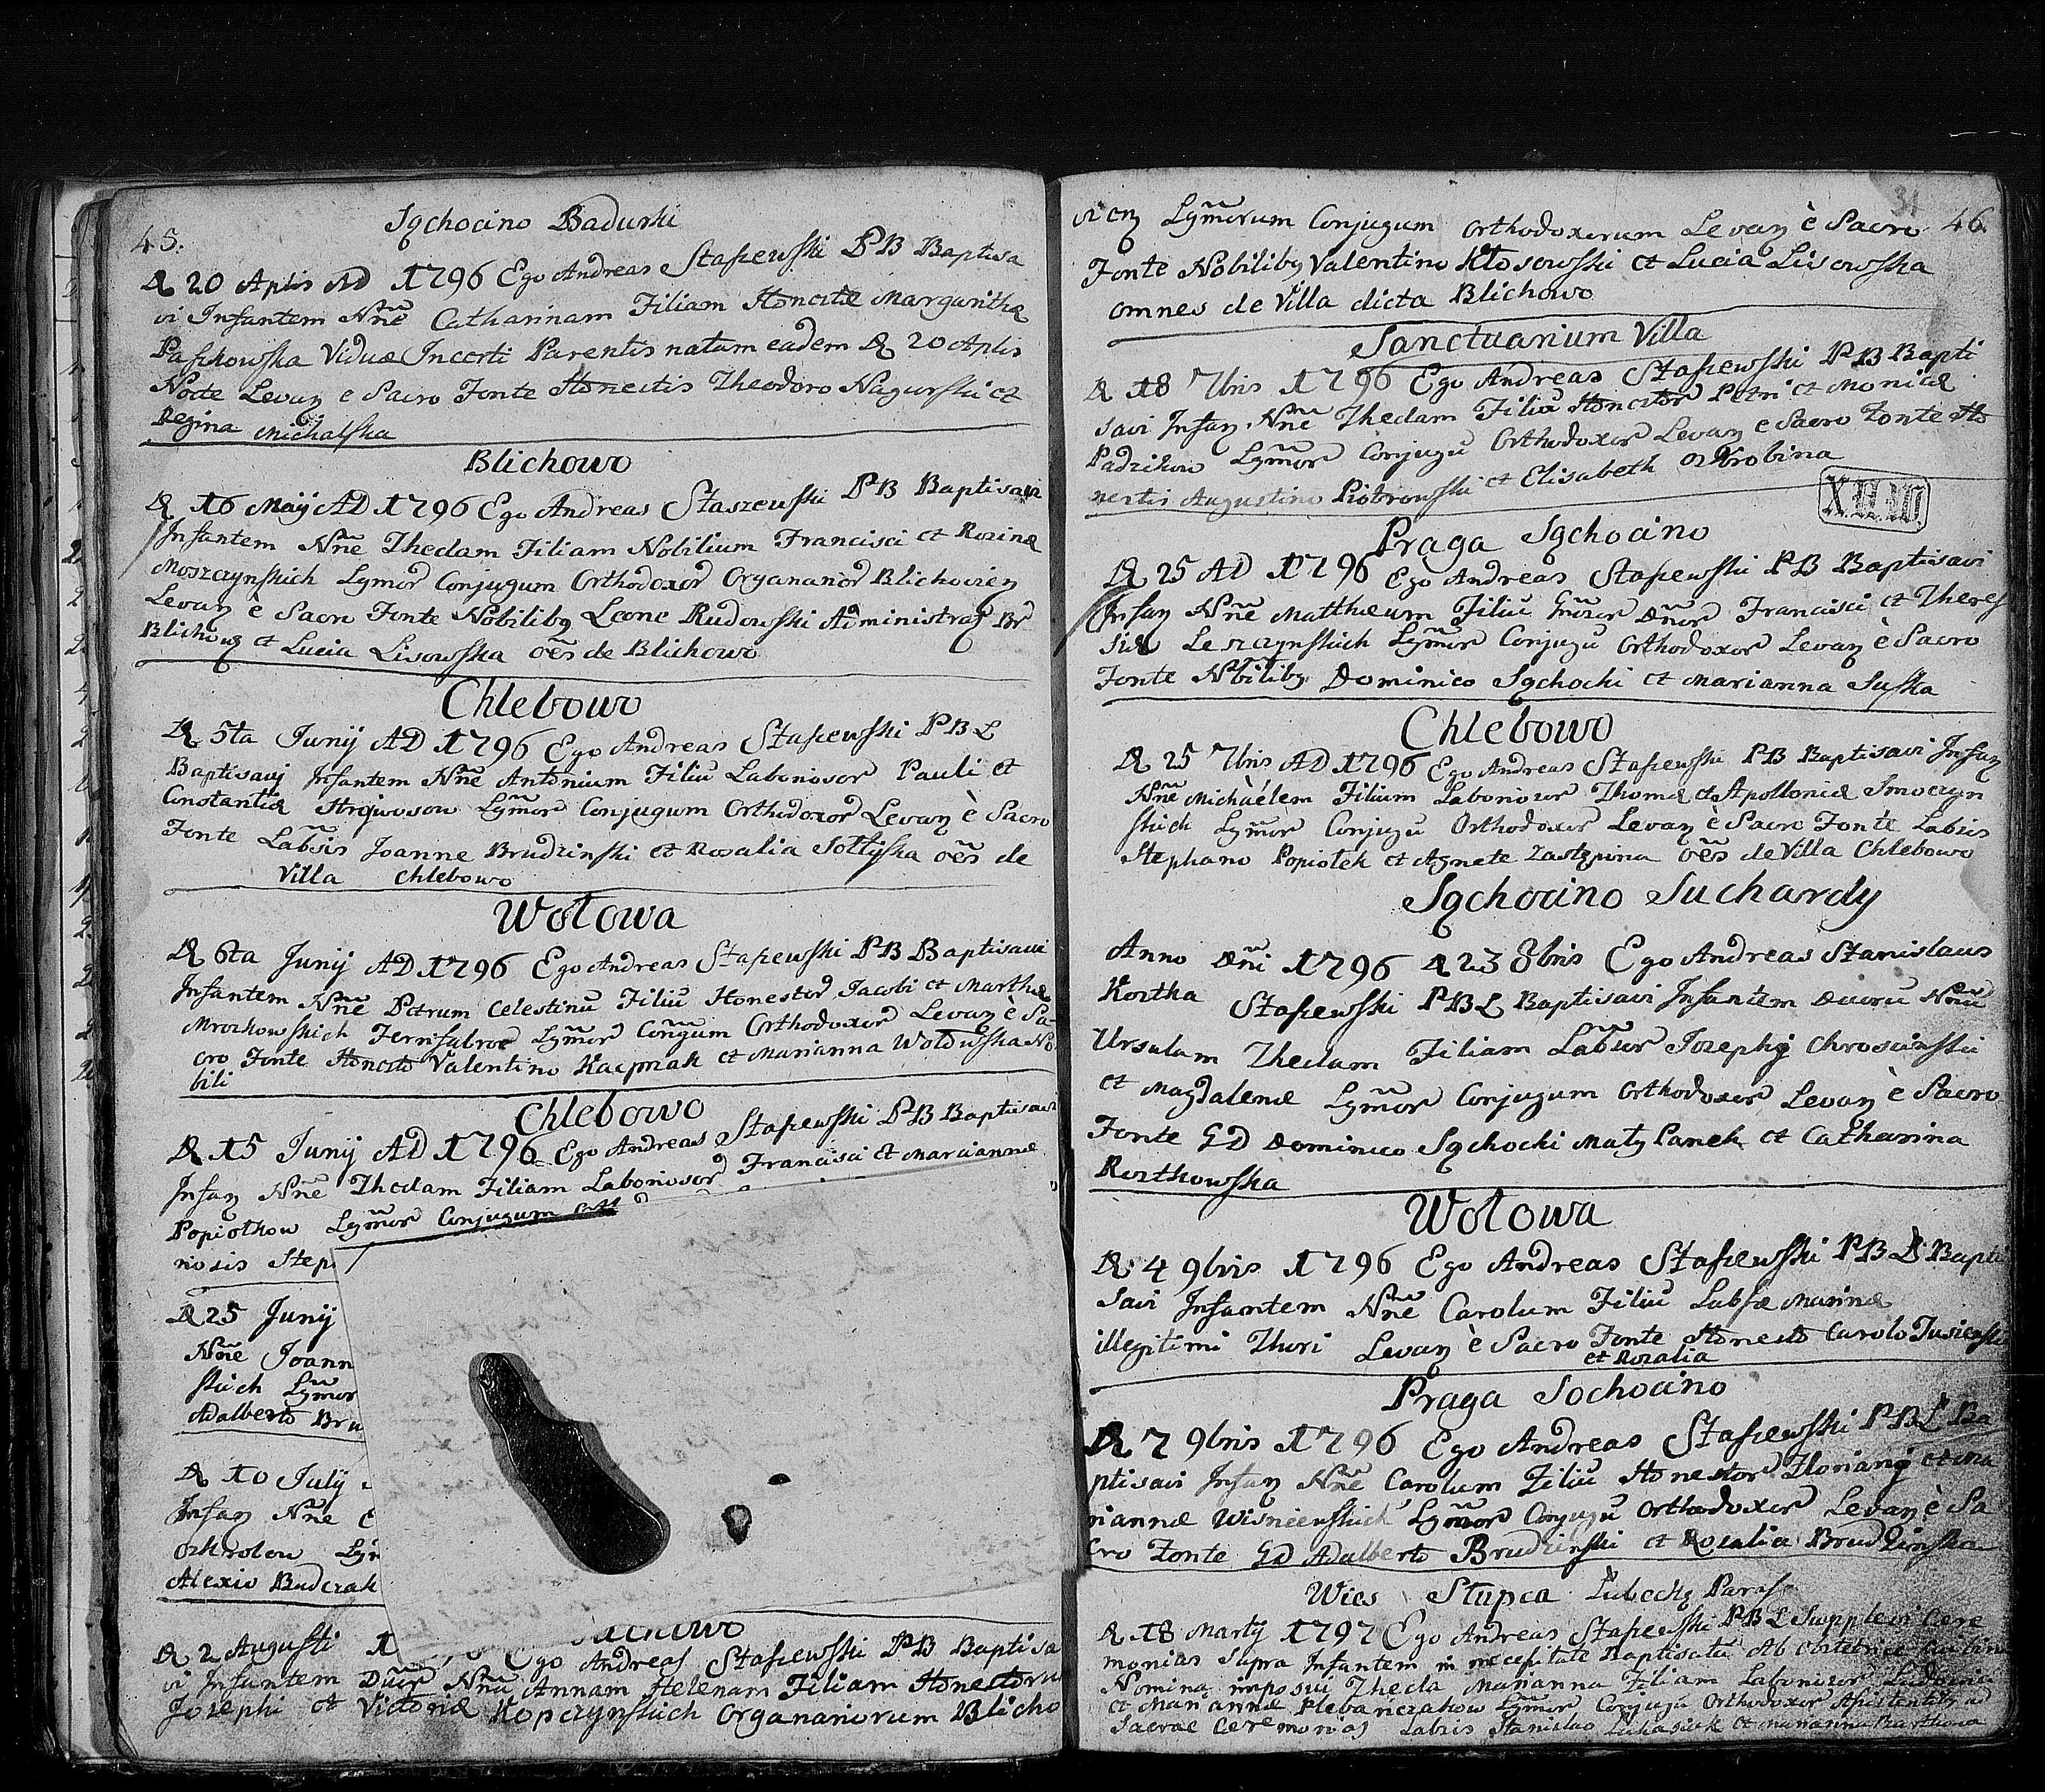 45.
Sąchocino Badurki
D 20 Aplis AD 1796 Ego Andreas Staszewski PB Baptisa
vi Infantem Nñe Catharinam Filiam Honestæ Margarithæ
Paszkowska Viduæ Incerti Parentis natam eadem D 20 Aplis
Nocte Levan e Sacro Fonte Honestis Theodoro Nagurski et
Regina Michalska
Blichowo
D 16 Maij AD 1796 Ego Andreas Staszewski PB Baptisavi
Infantem Nñe Theclam Filiam Nobilium Francisci et Rozinæ
Moszczynskich Lgmor Conjugum Orthodoxor Organarior Blichovien
Levan è Sacro Fonte Nobilibq Leone Rudowski Administrat Br
Blichow et Lucia Lisowska oẽs de Blichowo
Chlebowo
D 5ta Junij AD 1796 Ego Andreas Staszewski PBL
Baptisavj Infantem Nñe Antonium Filiũ Laboriosor Pauli et
Constantiæ Lgm̃or Conjugum Orthodoxor Levan è Sacro
Fonte Labsis Joanne Brudzinski et Rosalia Sołtyska oẽs de
Villa Chlebowo
Wołowa
D 6ta Junij AD 1796 Ego Andreas Staszewski PB Baptisavi
Infantem Nñe Petrum Celestinũ Filiũ Honestor Jacobi et Marthæ
Mrozkowskich Ferrifabror Lgm̃or Coñgum Orthodoxor Levan è Sa-
cro Fonte Honesto Valentino Kacprzak et Marianna Wołowska No
bili
Chlebowo
D 15 Junij AD 1796 Ego Andreas Staszewski PB Baptisavi
Infan Nñe Theclam Filiam Laboriosor Francisci et Mariannæ
Popiołkow Lgm̃or Conjugum
riosis Step
D 25 Junij
Nñe Joann
skich Lgm̃or
Adalberto Bru
D 10 July
Infan Nñe
ozkrolou Lgm
Alexio Budczak
D 2 Augusti 1 Ego Andreas Staszewski PB Baptisa
vi Infantem Duor Nñu Annam Helenam Filiam Honestoru
Josephi et Victoriæ Kopczynskich Organariorum Blicho
31
46.
vien Lgm̃orum Conjugum Orthodoxorum Levan è Sacro
Fonte Nobilibq Valentino Kłosowski et Lucia Lisowska
omnes de Villa dicta Blichowo
Sanctuarium Villa
D 18 7bris 1796 Ego Andreas Staszewski PB Bapti
savi Infan Nñe Theclam Filiã Honestor Petri et Monicæ
Padzikow Lgm̃or Conjugũ Orthodoxor Levan e Sacro Fonte Ho
nestis Augustino Piotrowski et Elisabeth ozkrobina
Praga Sąchocino
D 25 AD 1796 Ego Andreas Staszewski PB Baptisavi
Infan Nñe Mattheum Filiũ Gñror Dñor Francisci et Theres
siæ Leszczynskich Lgm̃or Conjugũ Orthodoxor Levan è Sacro
Fonte Nbilibq Dominico Sąchocki et Marianna Suska
Chlebowo
D 25 7bris AD 1796 Ego Andreas Staszewski PB Baptisavi Infan
Nñe Michaélem Filium Laboriosor Thomæ et Apolloniæ Smoczyn
skich Lgm̃or Conjugũ Orthodoxor Levan è Sacro Fonte Labsis
Stephano Popiołek et Agnete Zastępina oẽs de Villa Chlebowo
Sąchocino Suchardy
Anno Dñi 1796 D 23 8bris Ego Andreas Stanislaus
Kostka Staszewski PBL Baptisavi Infantem Duorũ Nñũ
Ursulam Theclam Filiam Labsor Josephij Chroscinski
et Magdalenæ Lgm̃or Conjugum Orthodoxor Levan è Sacro
Fonte GD Dominico Sąchocki Mały Panek et Catharina
Rostkowska
Wołowa
D 4 9bris 1796 Ego Andreas Staszewski PBL Bapti
savi Infantem Nñe Carolum Filiũ Labsæ Marinæ
illegitimi Thori Levan è Sacro Fonte Honesto Carolo
et Rozalia
Praga Sochocino
D 7 9bris 1796 Ego Andreas Staszewski PBL Ba
ptisavi Infan Nñe Carolum Filiũ Honestor Florianij et Ma
riannæ Wisniewskich Lgm̃or Conjugũ Orthodoxor Levan è Sa
cro Fonte GD Adalberto Brudzinski et Rozalia Brudzinska
Wies Słupca Łubecky Paraf
D 18 Martij 1797 Ego Andreas Staszewski PBL Supplevi Cere
monias supra Infantem in necessitate Baptisatũ Ab Obstetrice
Nomina imposui Thecla Marianna Filiam Laboriosor Ludovici
et Mariannæ Plebanczakow Lgm̃or Conjugũ Orthodoxor Assistentibq ad
Sacras Ceremonias Labsis Stanislao Łukasiak et Marianna